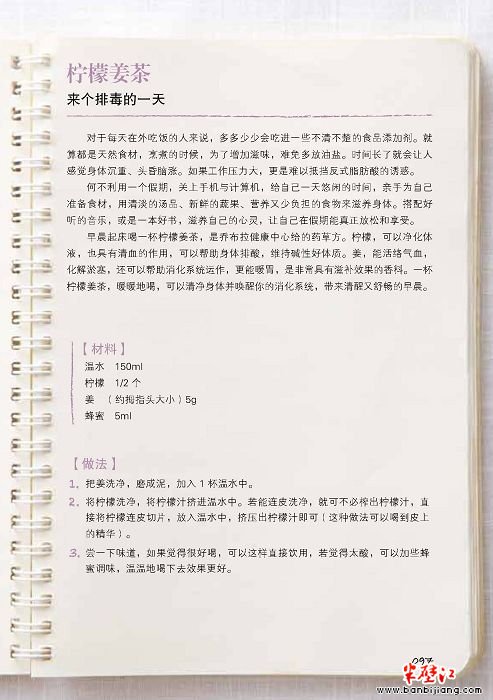 柠檬姜茶
来个排毒的一天
对于每天在外吃饭的人来说，多多少少会吃进一些不清不整的食品添加剂。就
算都是天然食材，烹煮的时候，为了增加滋味，难免多放油盐。时间长了就会让人
感觉身体沉重、头昏脑涨。如果工作压力大，更是难以抵挡反式脂肪酸的诱惑。
何不利用一个假期，关上手机与计算机，给自己一天悠闲的时间，亲手为自己
准备食材，用清淡的汤品、新鲜的蔬果、营养又少负担的食物来滋养身体。搭配好
听的音乐，或是一本好书，滋养自己的心灵，让自己在假期能真正放松和享受。
早晨起床喝一杯柠檬姜茶，是乔布拉健康中心给的药草方。柠檬，可以净化体
液，也具有清血的作用，可以帮助身体排酸，维持碱性好体质。姜，能活络气血，
化解淤塞，还可以帮助消化系统运作，更能暖胃，是非常具有滋补效果的香料。一杯
柠檬姜茶，暖暖地喝，可以清净身体并唤醒你的消化系统，带来清醒又舒畅的早晨。
【材料】
温水 150ml
柠檬 1/2 个
姜 （约拇指头大小）5g
蜂蜜 5ml
【做法】
1. 把姜洗净，磨成泥，加入 1 杯温水中。
2. 将柠檬洗净，将柠檬汁挤进温水中。若能连皮洗净，就可不必榨出柠檬汁，直
接将柠檬连皮切片，放入温水中，挤压出柠檬汁即可（这种做法可以喝到皮上
的精华）。
3. 尝一下味道，如果觉得很好喝，可以这样直接饮用，若觉得太酸，可以加些蜂
蜜调味，温温地喝下去效果更好。
097
半壁江
www.banbijiang.com